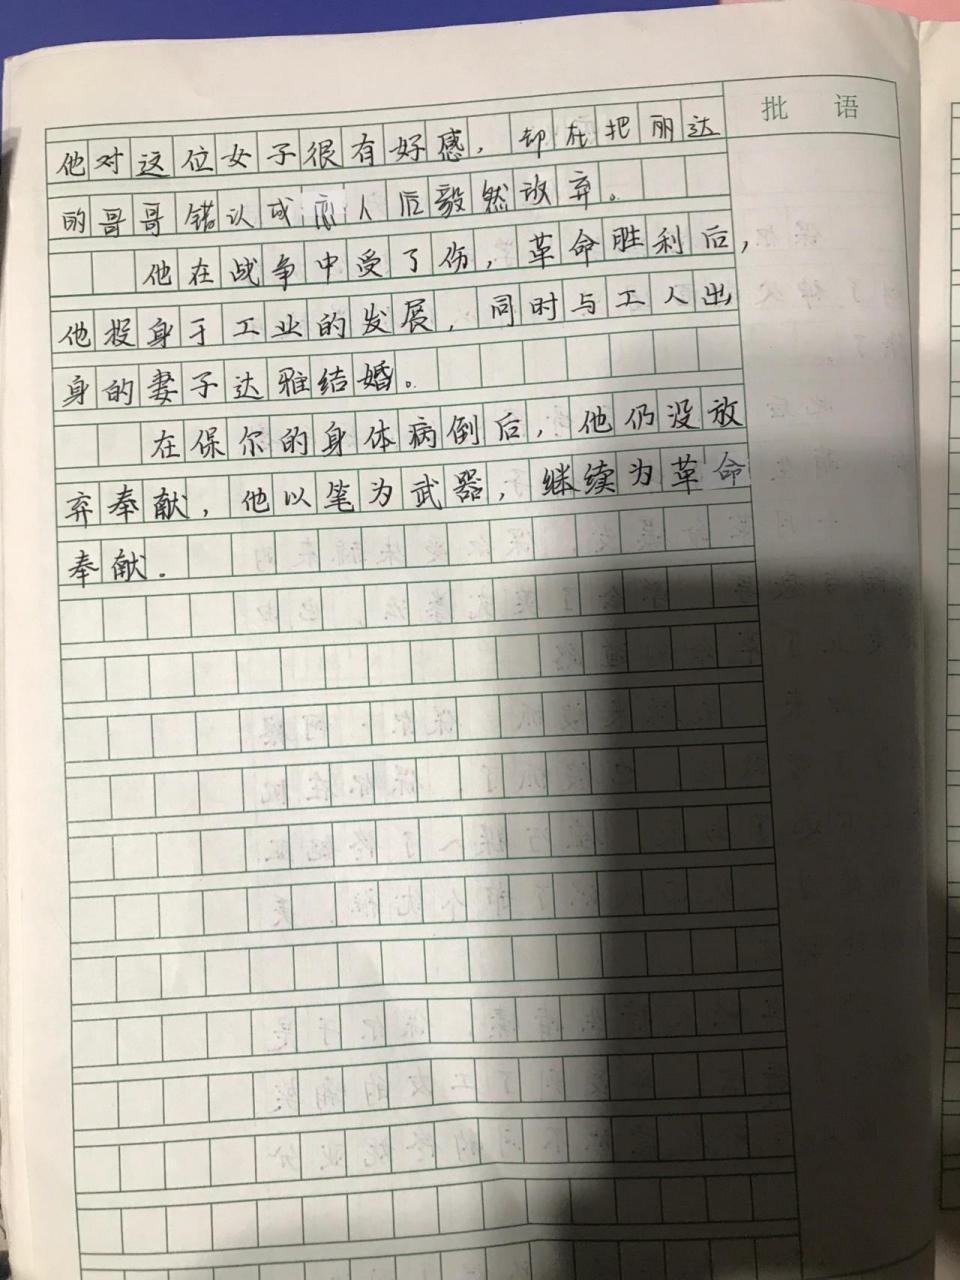 批 语
他对这位女子很有好感，却在把丽达
的哥哥错认成恋人后毅然放弃。
他在战争中受了伤，革命胜利后，
他投身于工业的发展，同时与工人出
身的妻子达雅结婚。
在保尔的身体病倒后，他仍没放
弃奉献，他以笔为武器，继续为革命
奉献.